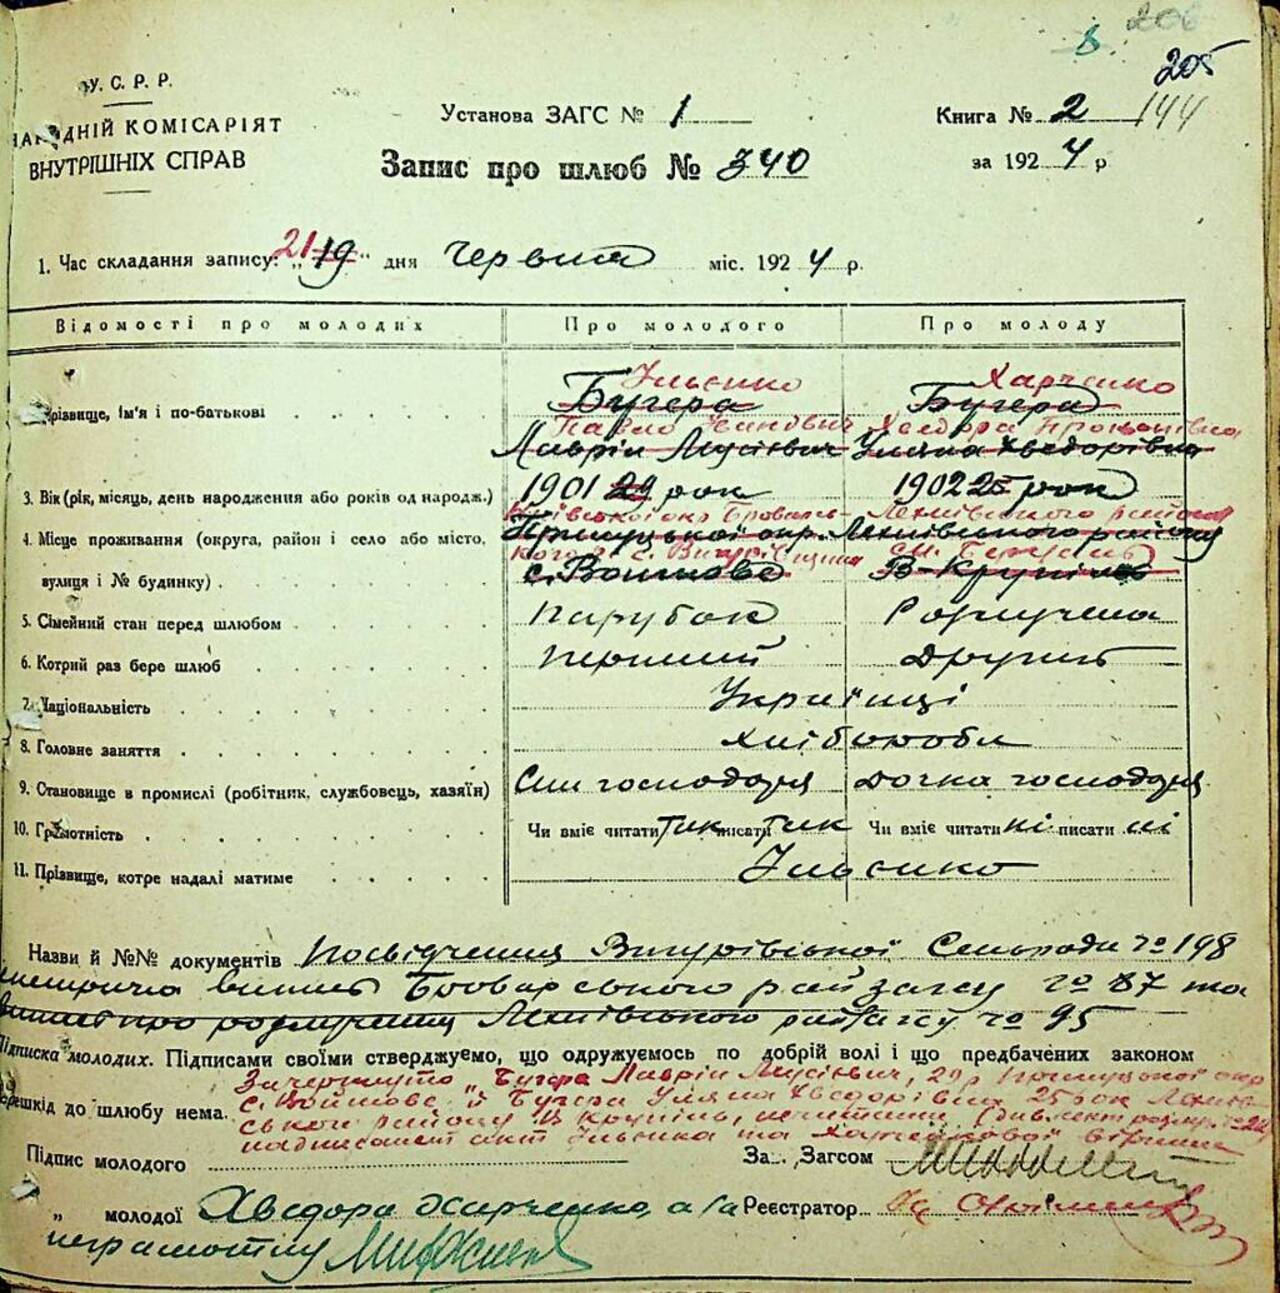 205
144
У. С. Р. Р.
НАРОДНІЙ КОМІСАРІЯТ
ВНУТРІШНІХ СПРАВ
Установа ЗАГС № 1
Книга № 2
Запис про шлюб № 340
за 1924 р
1. Час складання запису: „ 21 19 " дня червня міс. 1924 р.
Відомості про молодих Про молодого Про молоду
Ильєнко Харченко
Прізвище, ім'я і по-батькові Бугера Бугера
Павло Іванович Хведора Прокопівна
Лаврін Мусієвич Уляна Хведорівна
3. Вік (рік, місяць, день народження або років од народж.) 1901 29 рок 1902 25 рок
Київської окр Броварсь- Лехнівського району
4. Місце проживання (округа, район і село або місто, Прилуцької окр. Лехнівського району
кого р. с. Вигурівщина
вулиця і № будинку) с. Войтове В-Крупіль
5. Сімейний стан перед шлюбом Парубок Розлучена
6. Котрий раз бере шлюб перший Другий
7. Національність Українці
8. Головне заняття хлібороби
9. Становище в промислі (робітник, службовець, хазяїн) Син господаря Дочка господаря
10. Грамотність Чи вміє читати так писати так Чи вміє читати ні писати ні
11. Прізвище, котре надалі матиме Ильєнко
Назви й №№ документів Посвідчення Вигурівської Сельради № 198
метрична випись Броварського райзагсу № 87 та
випись про розлучення Лехнівського райзагсу № 95
Підписка молодих. Підписами своїми стверджуємо, що одружуємось по добрій волі і що предбачених законом
Зачеркнуто „Бугера Лаврін Мусієвич, 29 р Прилуцької окр
перешкід до шлюбу нема. с. Войтове й Бугера Уляна Хведорівна 25 рок Лехнів-
ського району В Крупіль,
надписаний акт Ильєнка та Харченкової вірним
Підпис молодого За . Загсом
„ молодої Хведора Харченко, а за Реєстратор
неграмотну